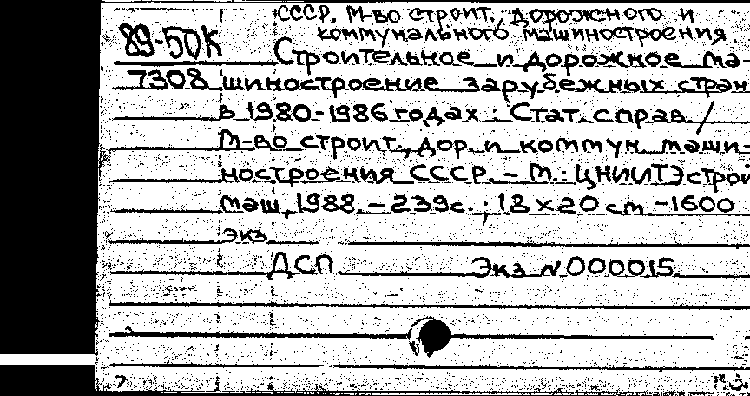 СССР. М-во строит., дорожного и
коммунального машиностроения
89-50К
Строительное и дорожное ма-
7308 шиностроение зарубежных стран
в 1980-1986 годах : Стат. справ. /
М-во строит., дор. и коммун. маши-
ностроения СССР. – М. : ЦНИИТЭстрой
маш, 1988. – 239с. ; 18 x 20 cm – 1600
экз
ДСП Экз N000015